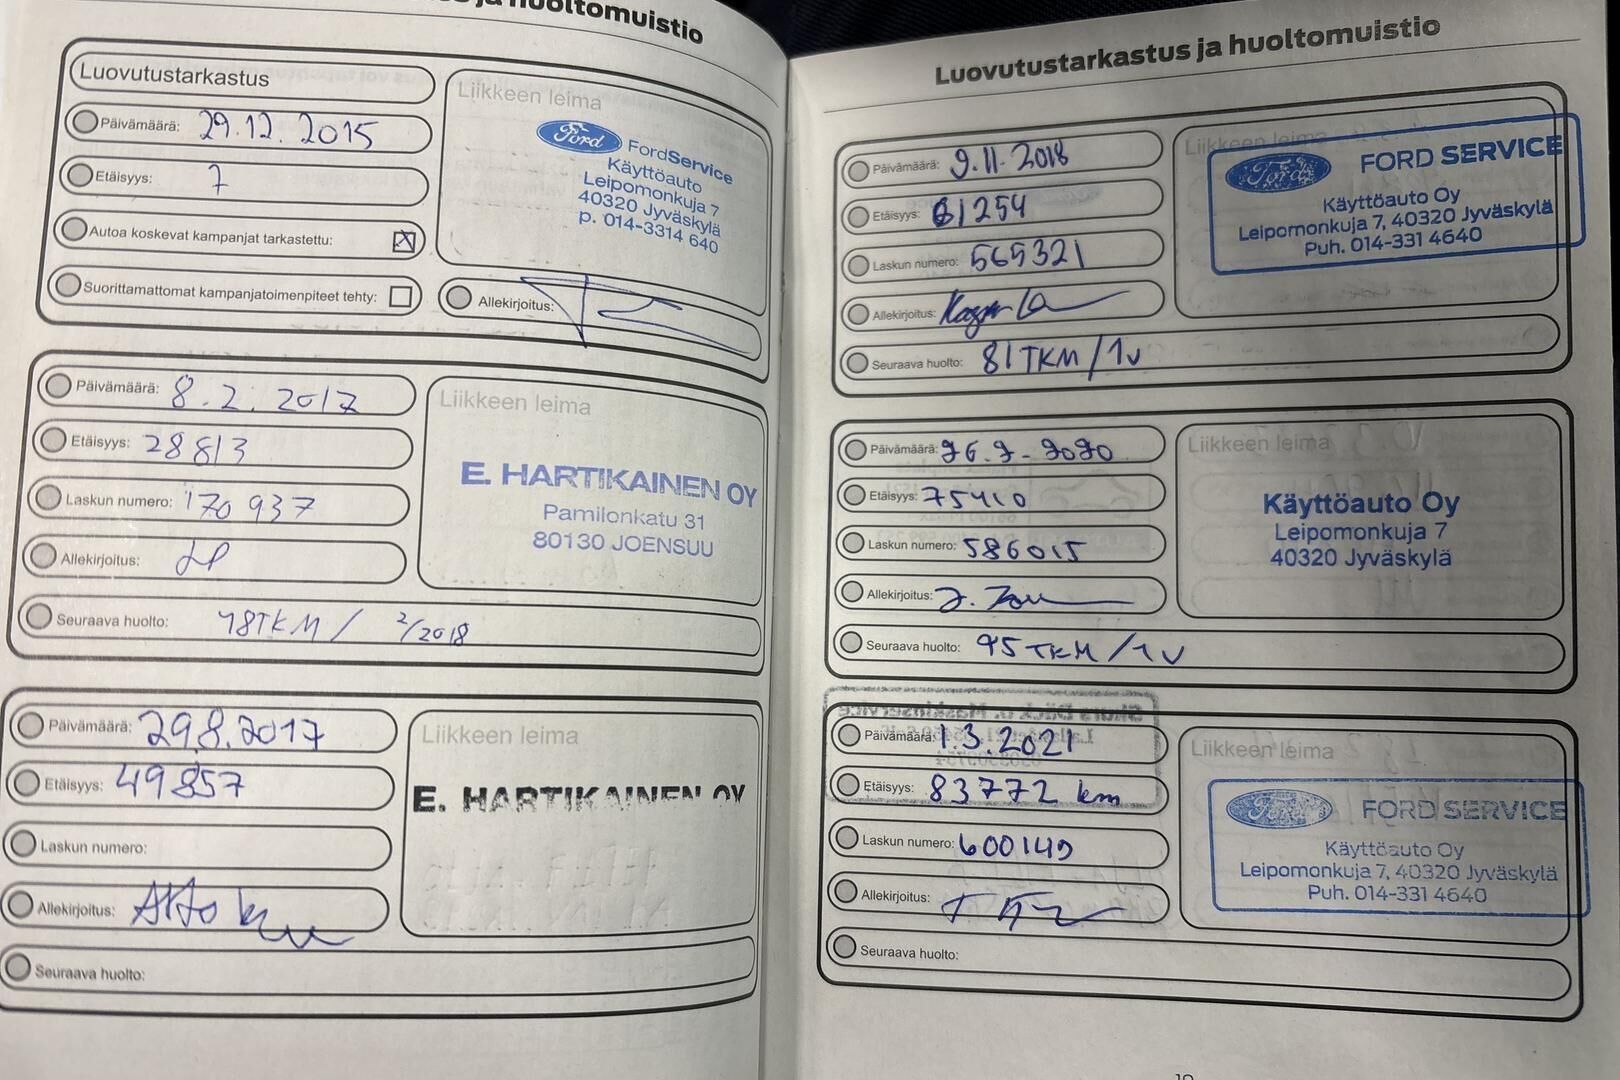 Luovutustarkastus ja huoltomuistio
Luovutustarkastus
Päivämäärä: 29.12.2015
Etäisyys: 7
Autoa koskevat kampanjat tarkastettu: X
Suorittamattomat kampanjatoimenpiteet tehty:
Liikkeen leima
Ford FordService
Käyttöauto
Leipomonkuja 7
40320 Jyväskylä
p. 014-3314 640
Allekirjoitus:
Päivämäärä: 8.2.2017
Etäisyys: 28813
Laskun numero: 170937
Allekirjoitus:
Seuraava huolto: 48TKM / 2/2018
Liikkeen leima
E. HARTIKAINEN OY
Pamilonkatu 31
80130 JOENSUU
Päivämäärä: 29.8.2017
Etäisyys: 49857
Laskun numero:
Allekirjoitus:
Seuraava huolto:
Liikkeen leima
E. HARTIKAINEN OY
Luovutustarkastus ja huoltomuistio
Päivämäärä: 9.11.2018
Etäisyys: 61254
Laskun numero: 565321
Allekirjoitus:
Seuraava huolto: 81TKM/1v
Liikkeen leima
Ford FORD SERVICE
Käyttöauto Oy
Leipomonkuja 7, 40320 Jyväskylä
Puh. 014-331 4640
Päivämäärä: 26.2-2020
Etäisyys: 75410
Laskun numero: 586015
Allekirjoitus:
Seuraava huolto: 95TKM/1V
Liikkeen leima
Käyttöauto Oy
Leipomonkuja 7
40320 Jyväskylä
Päivämäärä: 1.3.2021
Etäisyys: 83772 km
Laskun numero: 600149
Allekirjoitus:
Seuraava huolto:
Liikkeen leima
Ford FORD SERVICE
Käyttöauto Oy
Leipomonkuja 7, 40320 Jyväskylä
Puh. 014-331 4640